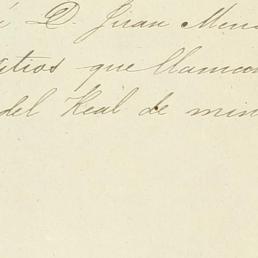 é D. Juan Men
itios que llaman
del Real de min